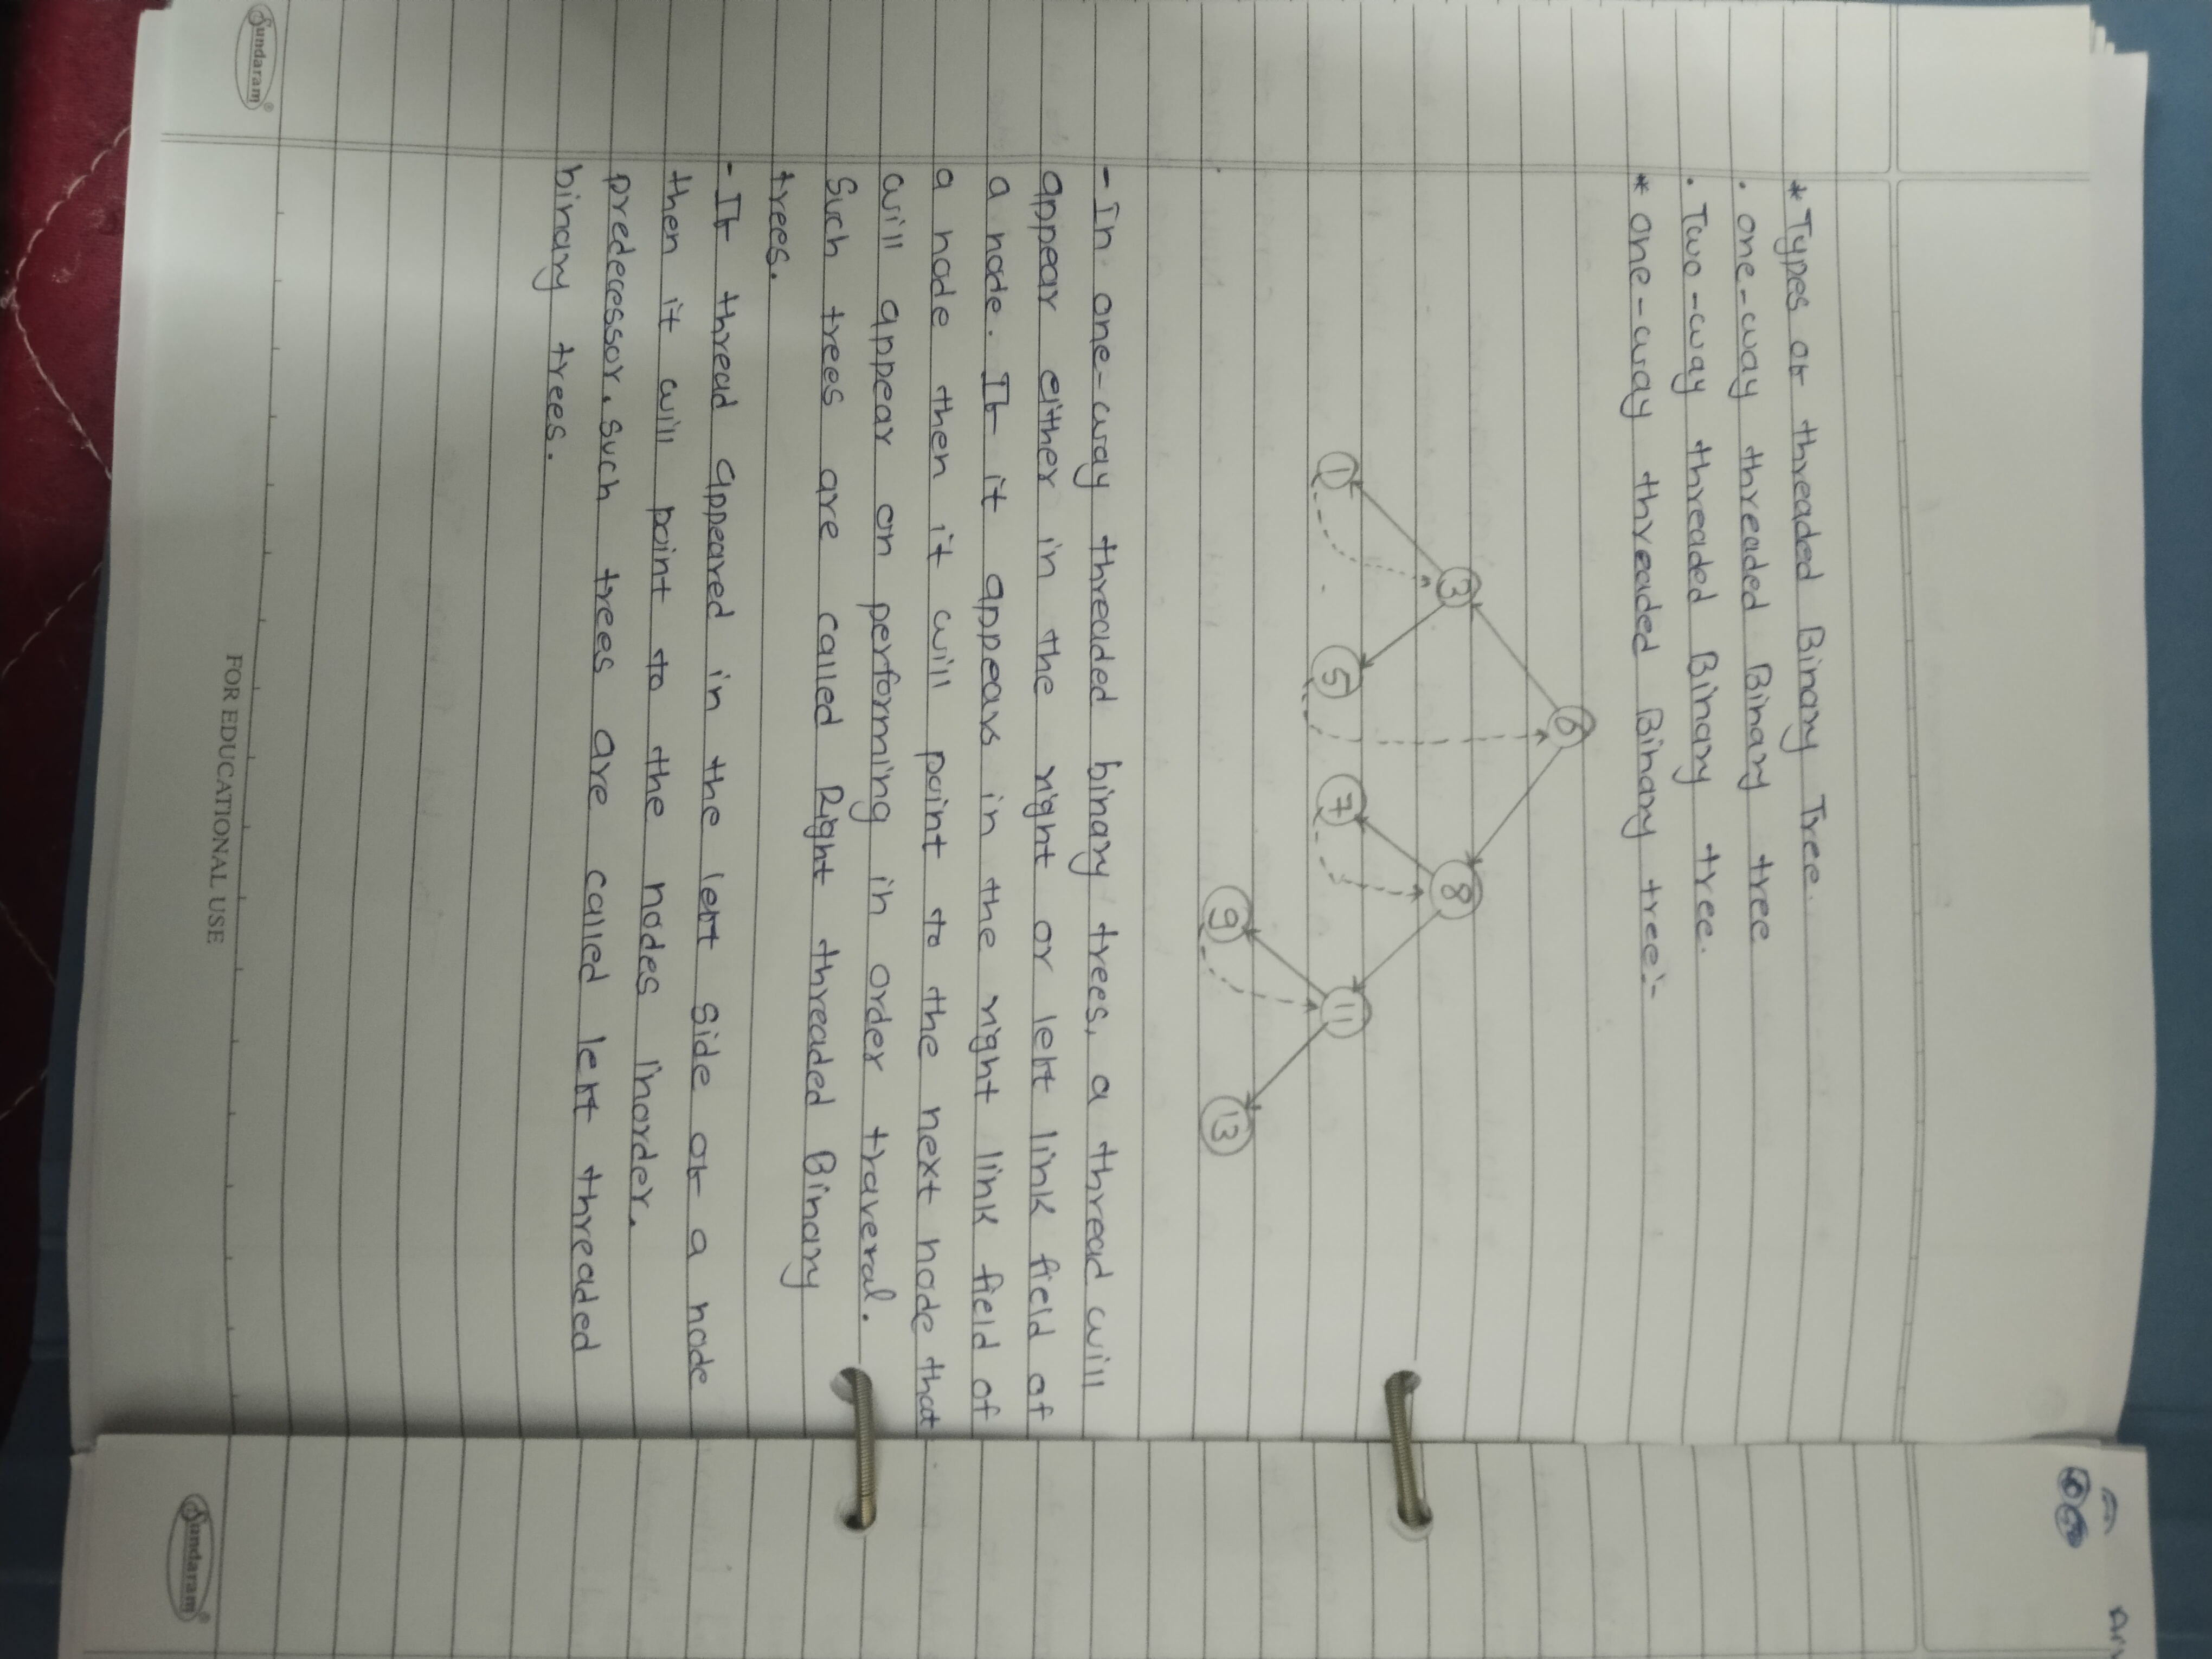 * Types of threaded Binary Tree.
. one-way threaded Binary tree
. Two-way threaded Binary tree.
* one-way threaded Binary tree:-
6
3 8
1 5 7 11
9 13
- In one-way threaded binary trees, a thread will
appear either in the right or left link field of
a node. If it appears in the right link field of
a node then it will point to the next node that
will appear on performing in order traveral.
Such trees are called Right threaded Binary
trees.
- If thread appeared in the left side of a node
then it will point to the nodes inorder.
predecessor. such trees are called left threaded
binary trees.
Sundaram®
FOR EDUCATIONAL USE
Sundaram®